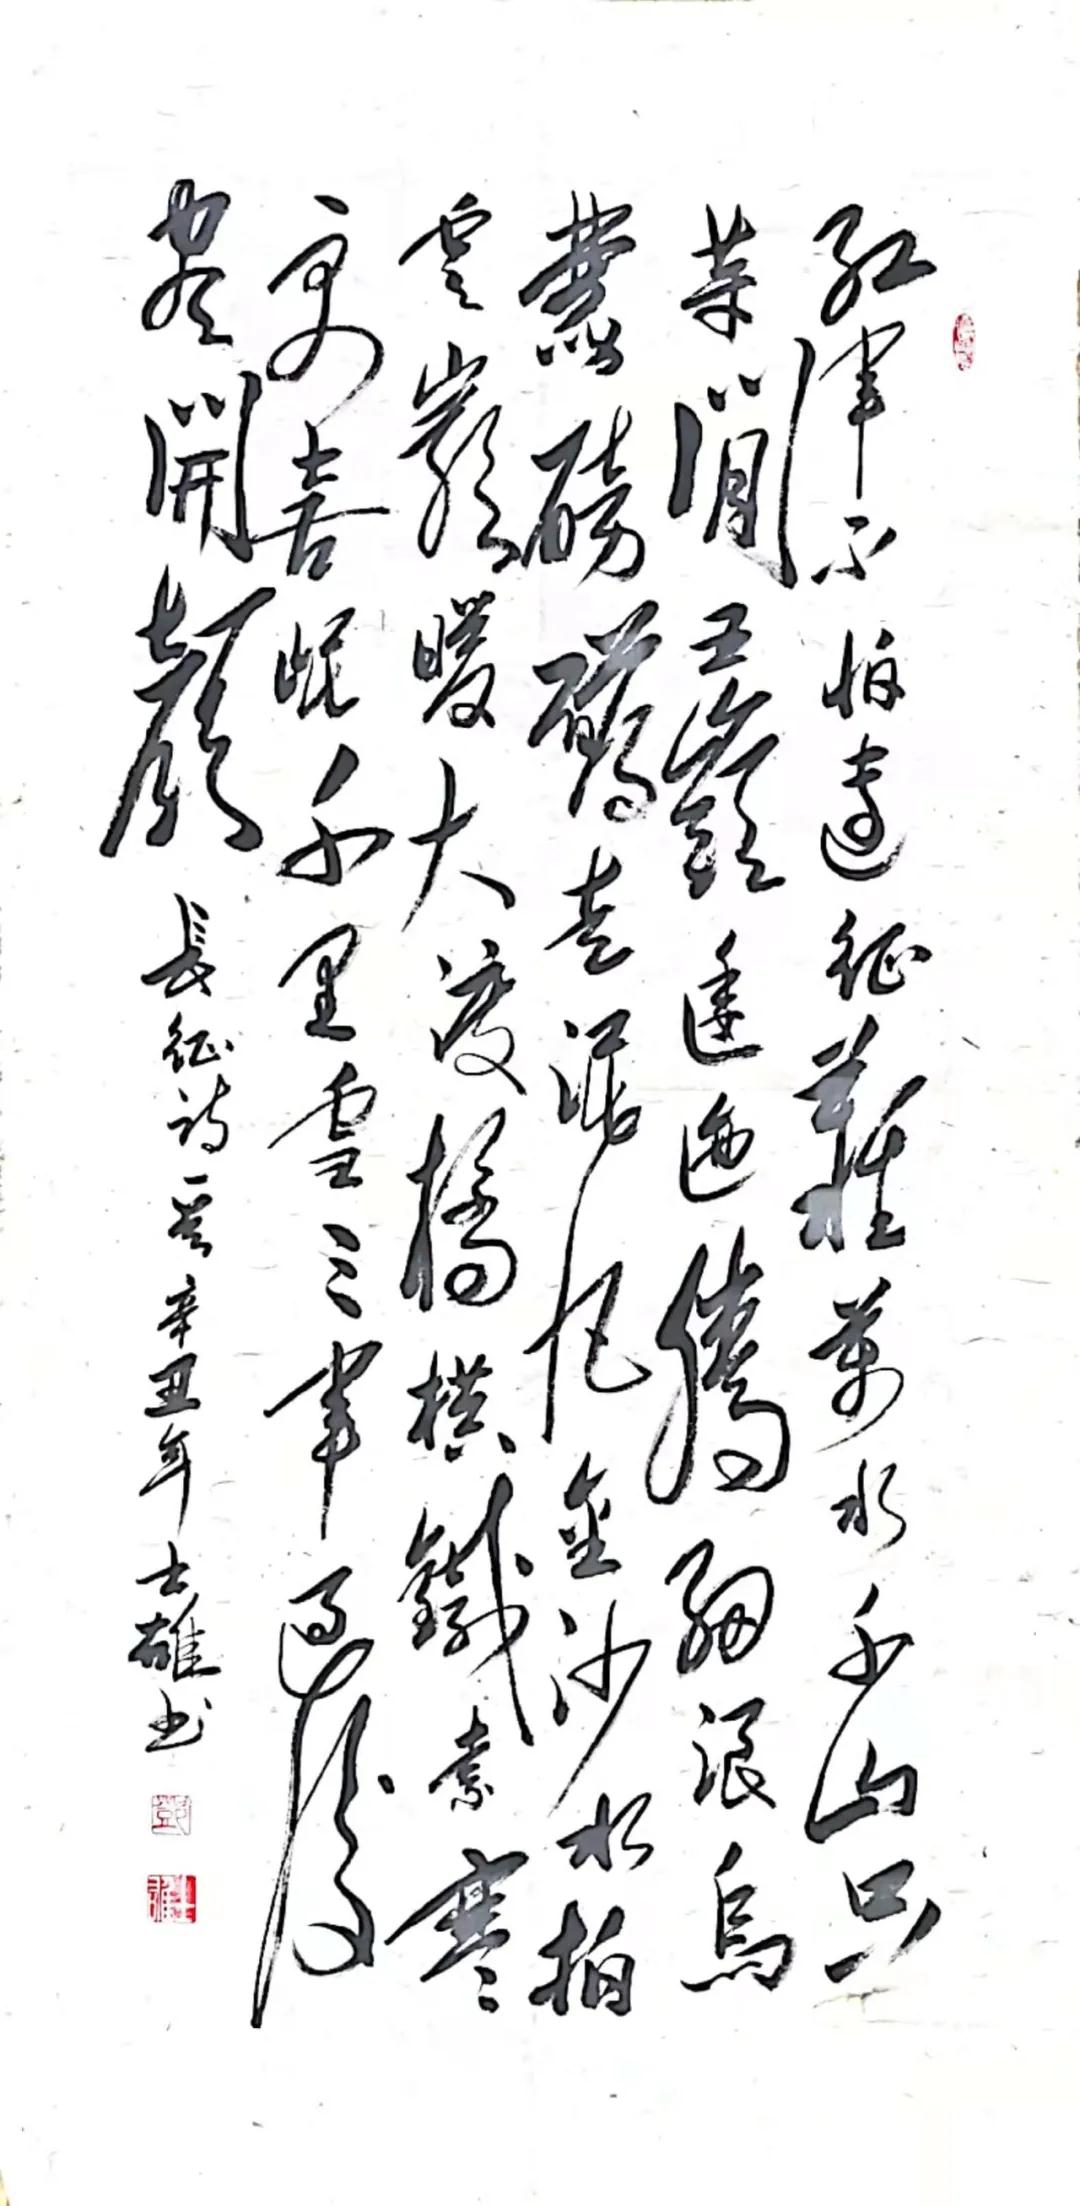 紅軍不怕遠征難萬水千山只
等閒五嶺逶迤騰細浪烏
蒙磅礴走泥丸金沙水拍
雲巖暖大渡橋横鐵索寒
更喜岷千里雪三軍過後
盡開顏 長征詩一首 辛丑年 士雄书
鄧
士雄